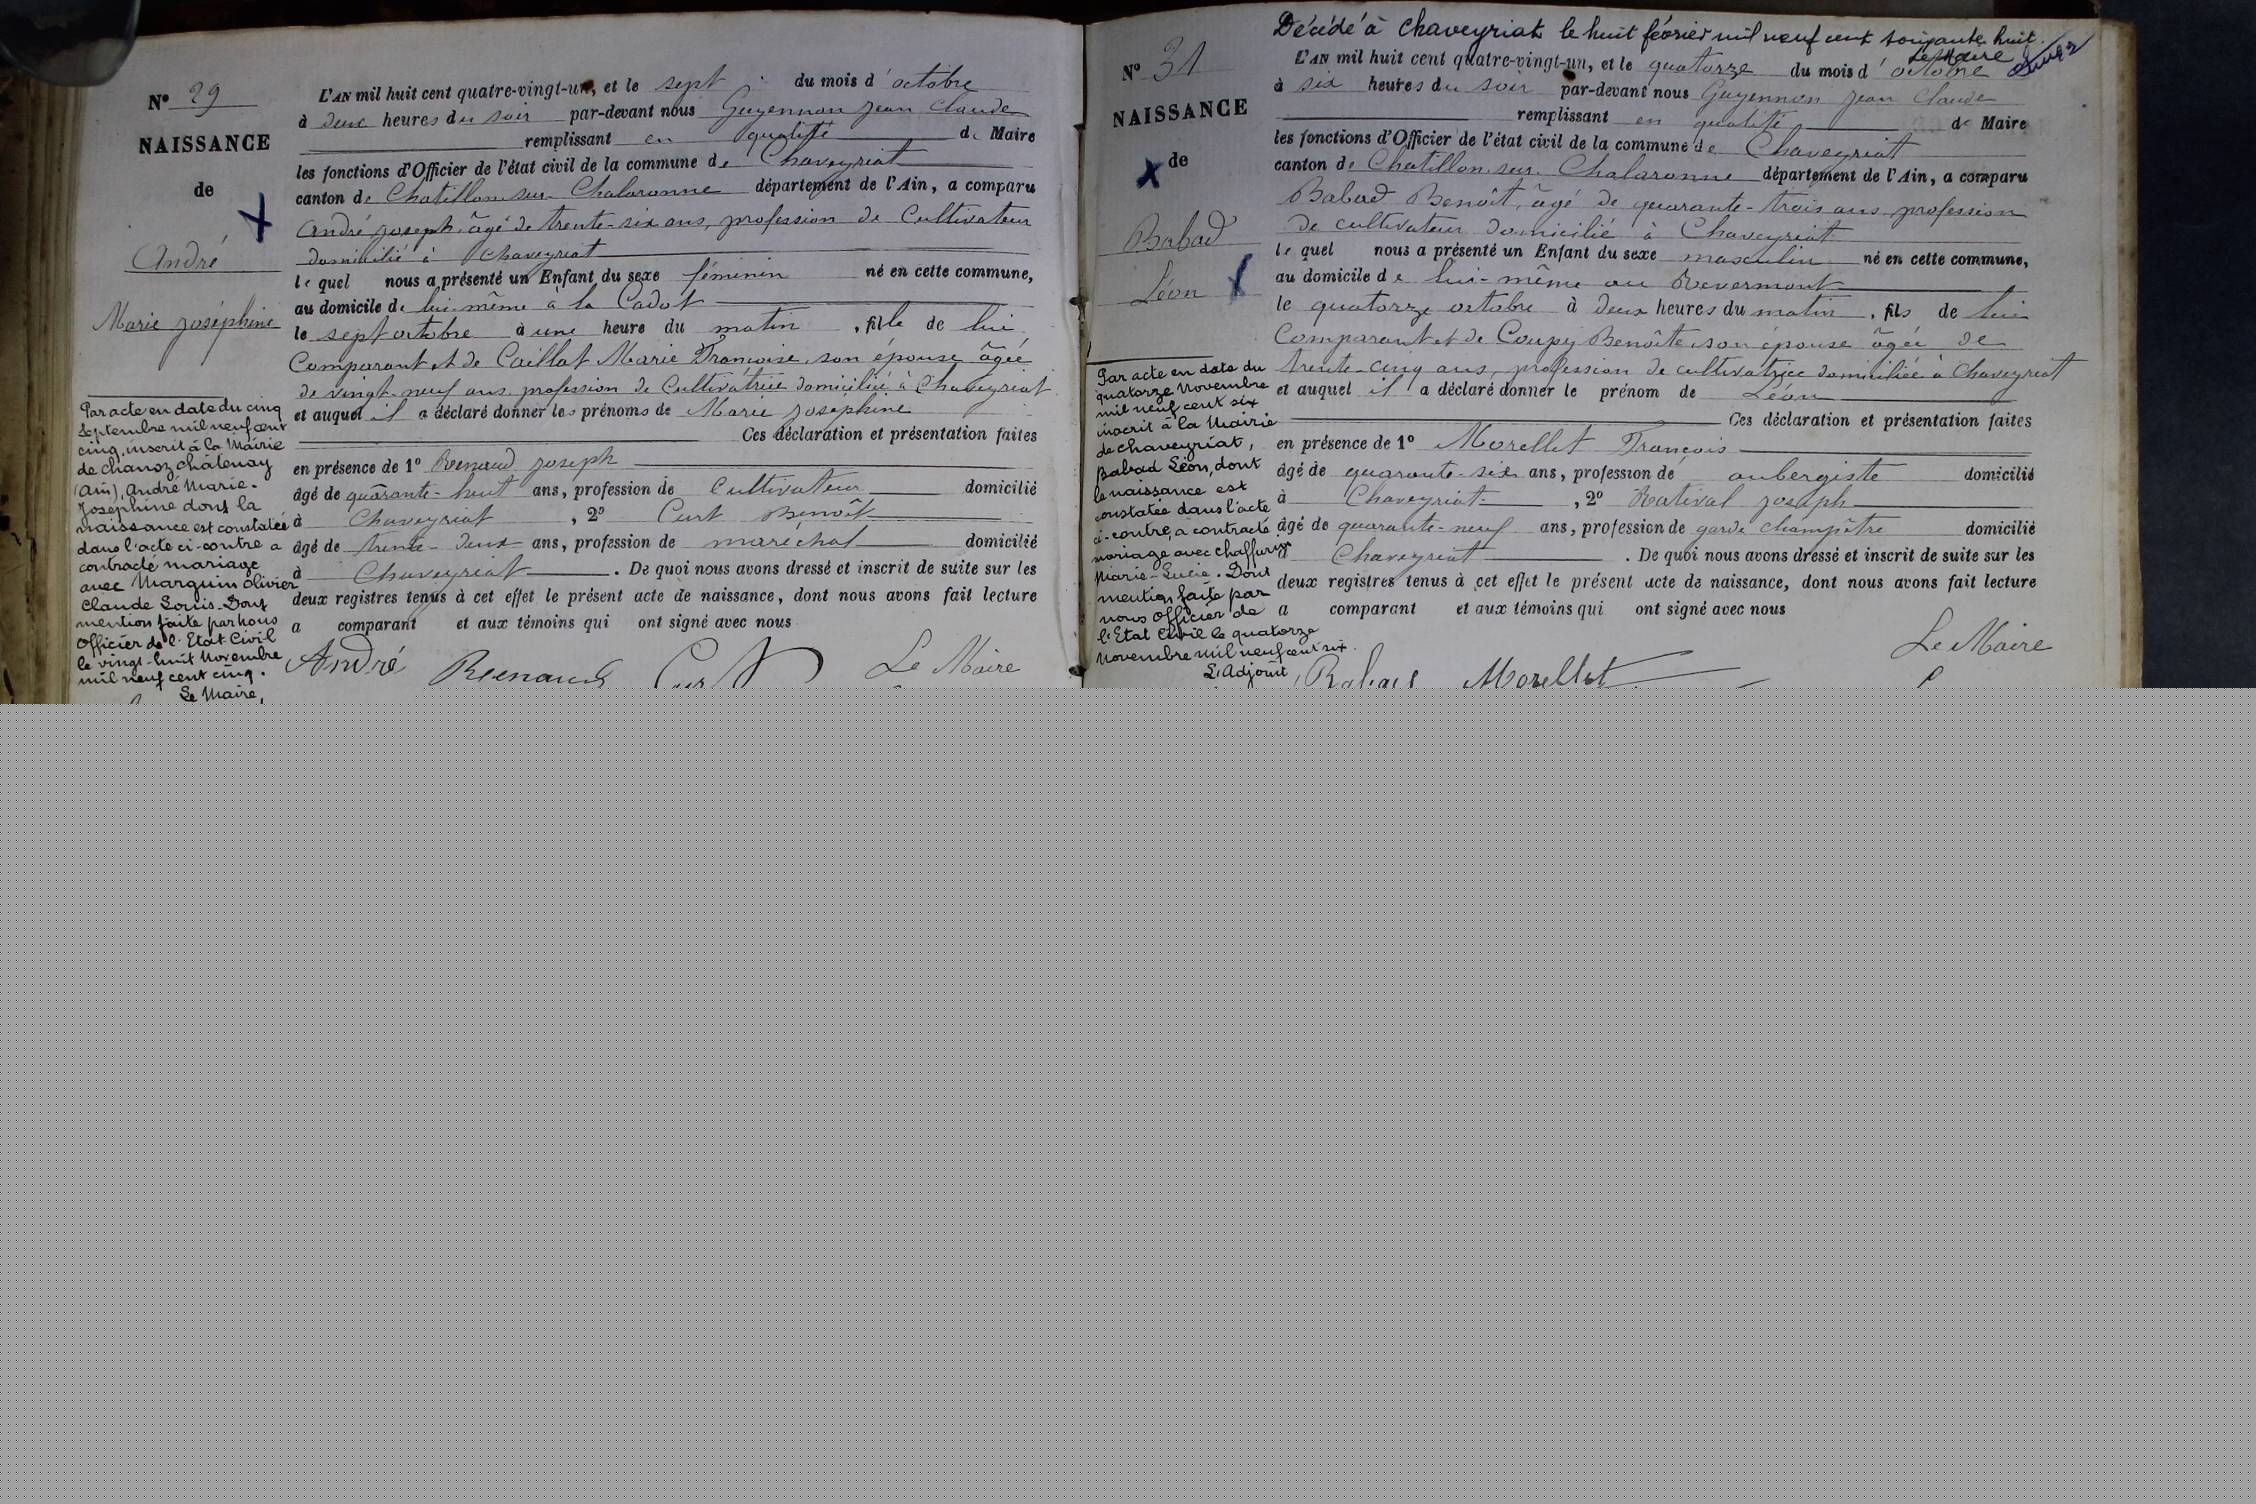 N° 29
NAISSANCE
de
André
Marie Joséphine
L'AN mil huit cent quatre-vingt-un, et le sept du mois d'octobre
à deux heures du soir par-devant nous Guyennon Jean Claude
remplissant en qualité de Maire
les fonctions d'Officier de l'état civil de la commune de Chaveyriat
canton de Chatillon sur Chalaronne département de l'Ain, a comparu
André Joseph, âgé de trente-six ans, profession de Cultivateur
domicilié à Chaveyriat
le quel nous a présenté un Enfant du sexe féminin né en cette commune,
au domicile de lui-même à la Cadot
le sept octobre à une heure du matin, fille de lui
Comparant et de Caillat Marie Françoise, son épouse âgée
de vingt-neuf ans profession de Cultivatrice domiciliée à Chaveyriat
et auquel il a déclaré donner les prénoms de Marie Joséphine
Ces déclaration et présentation faites
en présence de 1° Renaud Joseph
âgé de quarante-huit ans, profession de Cultivateur domicilié
à Chaveyriat, 2° Curt Benoît
âgé de trente-deux ans, profession de maréchal domicilié
à Chaveyriat. De quoi nous avons dressé et inscrit de suite sur les
deux registres tenus à cet effet le présent acte de naissance, dont nous avons fait lecture
a comparant et aux témoins qui ont signé avec nous
André Renaud Curt Le Maire
Par acte en date du cinq
Septembre mil neuf cent
cinq, inscrit à la Mairie
de Chanoz Châtenay
(Ain), André Marie-
Joséphine dont la
naissance est constatée
dans l'acte ci-contre a
contracté mariage
avec Marguin Olivier
Claude Louis. Dont
mention faite par nous
Officier de l'Etat Civil
le vingt-huit Novembre
mil neuf cent cinq.
Le Maire,
Décédé à Chaveyriat le huit février mil neuf cent soixante huit.
Le Maire
N° 31
NAISSANCE
de
Babad
Léon
L'AN mil huit cent quatre-vingt-un, et le quatorze du mois d'octobre
à six heures du soir par-devant nous Guyennon Jean Claude
remplissant en qualité de Maire
les fonctions d'Officier de l'état civil de la commune de Chaveyriat
canton de Chatillon sur Chalaronne département de l'Ain, a comparu
Babad Benoît, âgé de quarante-trois ans profession
de cultivateur domicilié à Chaveyriat
le quel nous a présenté un Enfant du sexe masculin né en cette commune,
au domicile de lui-même au Revermont
le quatorze octobre à deux heures du matin, fils de lui
Comparant et de Coupy Benoîte, son épouse âgée de
trente-cinq ans, profession de cultivatrice domiciliée à Chaveyriat
et auquel il a déclaré donner le prénom de Léon
Ces déclaration et présentation faites
en présence de 1° Morellet François
âgé de quarante-six ans, profession de aubergiste domicilié
à Chaveyriat, 2° Rativat Joseph
âgé de quarante-neuf ans, profession de garde champêtre domicilié
à Chaveyriat. De quoi nous avons dressé et inscrit de suite sur les
deux registres tenus à cet effet le présent acte de naissance, dont nous avons fait lecture
a comparant et aux témoins qui ont signé avec nous
Le Maire
Babad Morellet
Par acte en date du
quatorze Novembre
mil neuf cent six
inscrit à la Mairie
de Chaveyriat,
Babad Léon, dont
la naissance est
constatée dans l'acte
ci-contre, a contracté
mariage avec Chaffurin
Marie-Lucie. Dont
mention faite par
nous Officier de
l'Etat Civil le quatorze
Novembre mil neuf cent six.
L'Adjoint,